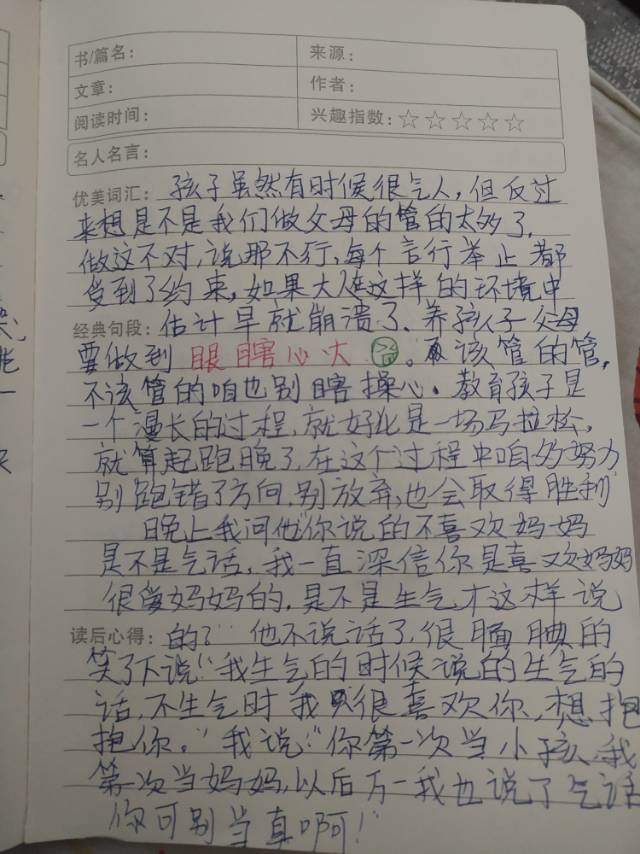 书/篇名：
来源：
文章：
作者：
阅读时间：
兴趣指数：☆☆☆☆☆
名人名言：
优美词汇： 孩子虽然有时候很气人，但反过
来想是不是我们做父母的管的太多了，
做这不对，说那不行，每个言行举止都
受到了约束，如果大人在这样的环境中
经典句段： 估计早就崩溃了。养孩子父母
要做到 眼瞎心大 。该管的管，
不该管的咱也别瞎操心。教育孩子是
一个漫长的过程，就好比是一场马拉松，
就算起跑晚了，在这个过程中咱的努力
别跑错了方向，别放弃，也会取得胜利
晚上我问他“你说的不喜欢妈妈
是不是气话，我一直深信你是喜欢妈妈
很爱妈妈的，是不是生气才这样说
读后心得： 的？”他不说话了，很腼腆的
笑了下说“我生气的时候说的生气的
话，不生气时我很喜欢你，想抱
抱你。”我说：“你第一次当小孩，我
第一次当妈妈，以后万一我也说了气话
你可别当真啊！”